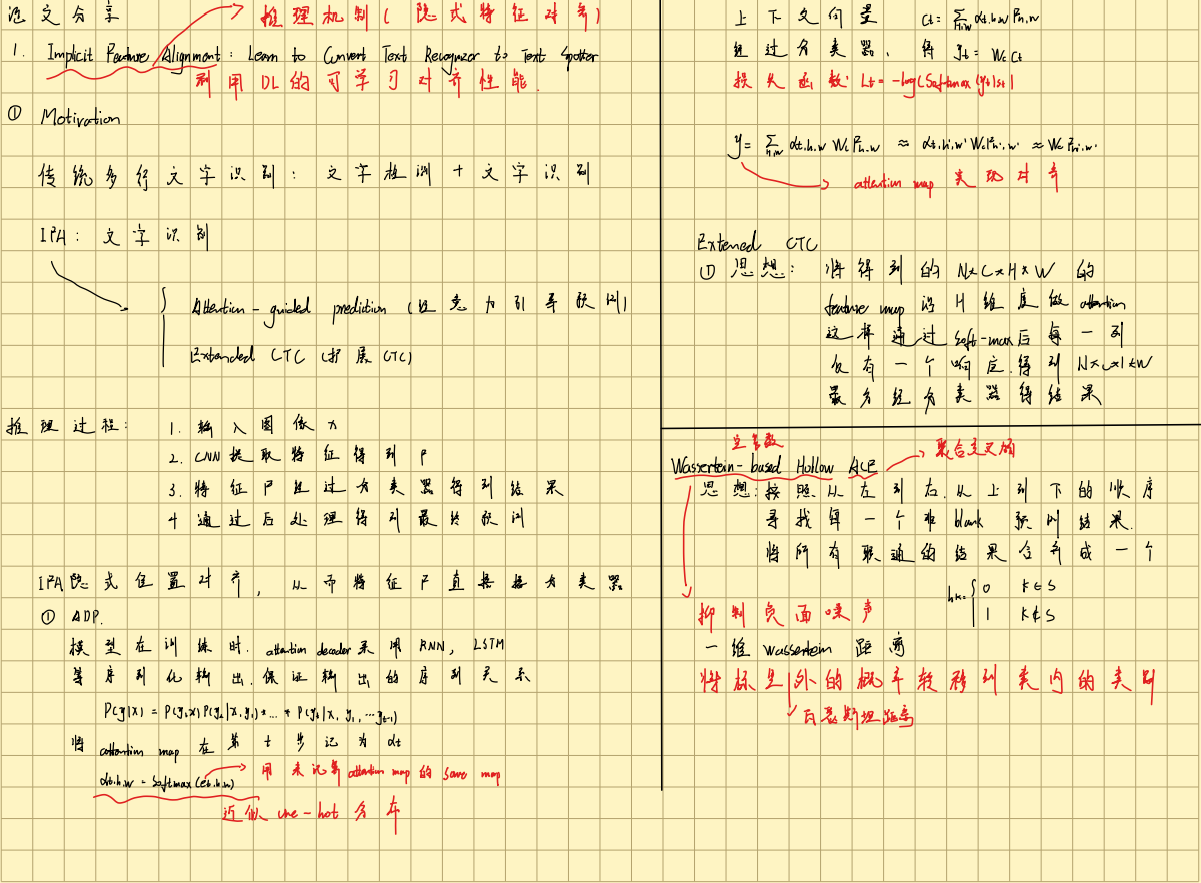 论文分享
推理机制(隐式特征对齐)
1. Implicit Feature Alignment: Learn to Convert Text Recognizer to Text Spotter
利用DL的可学习对齐性能.
① Motivation
传统多行文字识别: 文字检测 + 文字识别
IFA: 文字识别
Attention-guided prediction (注意力引导预测)
Extended CTC (扩展CTC)
推理过程:
1. 输入图像x
2. CNN提取特征得到F
3. 特征F经过分类器得到结果
4 通过后处理得到最终预测
IFA隐式位置对齐, 从而特征F直接接分类器
① ADP.
模型在训练时. attention decoder采用RNN, LSTM
等序列化输出.保证输出的序列关系
P(y|x) = P(y₁x)P(y₂|x,y₁)*...*P(yₜ|x, y₁, ...yₜ₋₁)
将attention map在第t步记为αt
αt.h.w = Softmax(et.h.w)
用来记算attention map的Save map
近似one-hot分布
上下文向量 Ct = Σh,w αt.h.w Fh,w
经过分类器, 得 yt = WcCt
损失函数: Lt = -log(Softmax(yt|st)
y = Σh,w αt,h,w WcFh,w ≈ αt.h'.w' WcFh'.w' ≈ WcFh'.w'
attention map实现对齐
Extened CTC
① 思想: 将得到的N×C×H×W的
feature map沿H维度做attention
这样通过soft-max后每一列
仅有一个响应.得到N×C×1×W
最后经分类器得结果
Wasserstein-based Hollow ACE
聚合交叉熵
思想:按照从左到右.从上到下的顺序
寻找每一个非blank预测结果.
将所有联通的结果合并成一个
hk = { 0 K∈S
1 K∉S
抑制负面噪声
一维wasserstein距离
将标签外的概率转移到类内的类别
瓦瑟斯坦距离